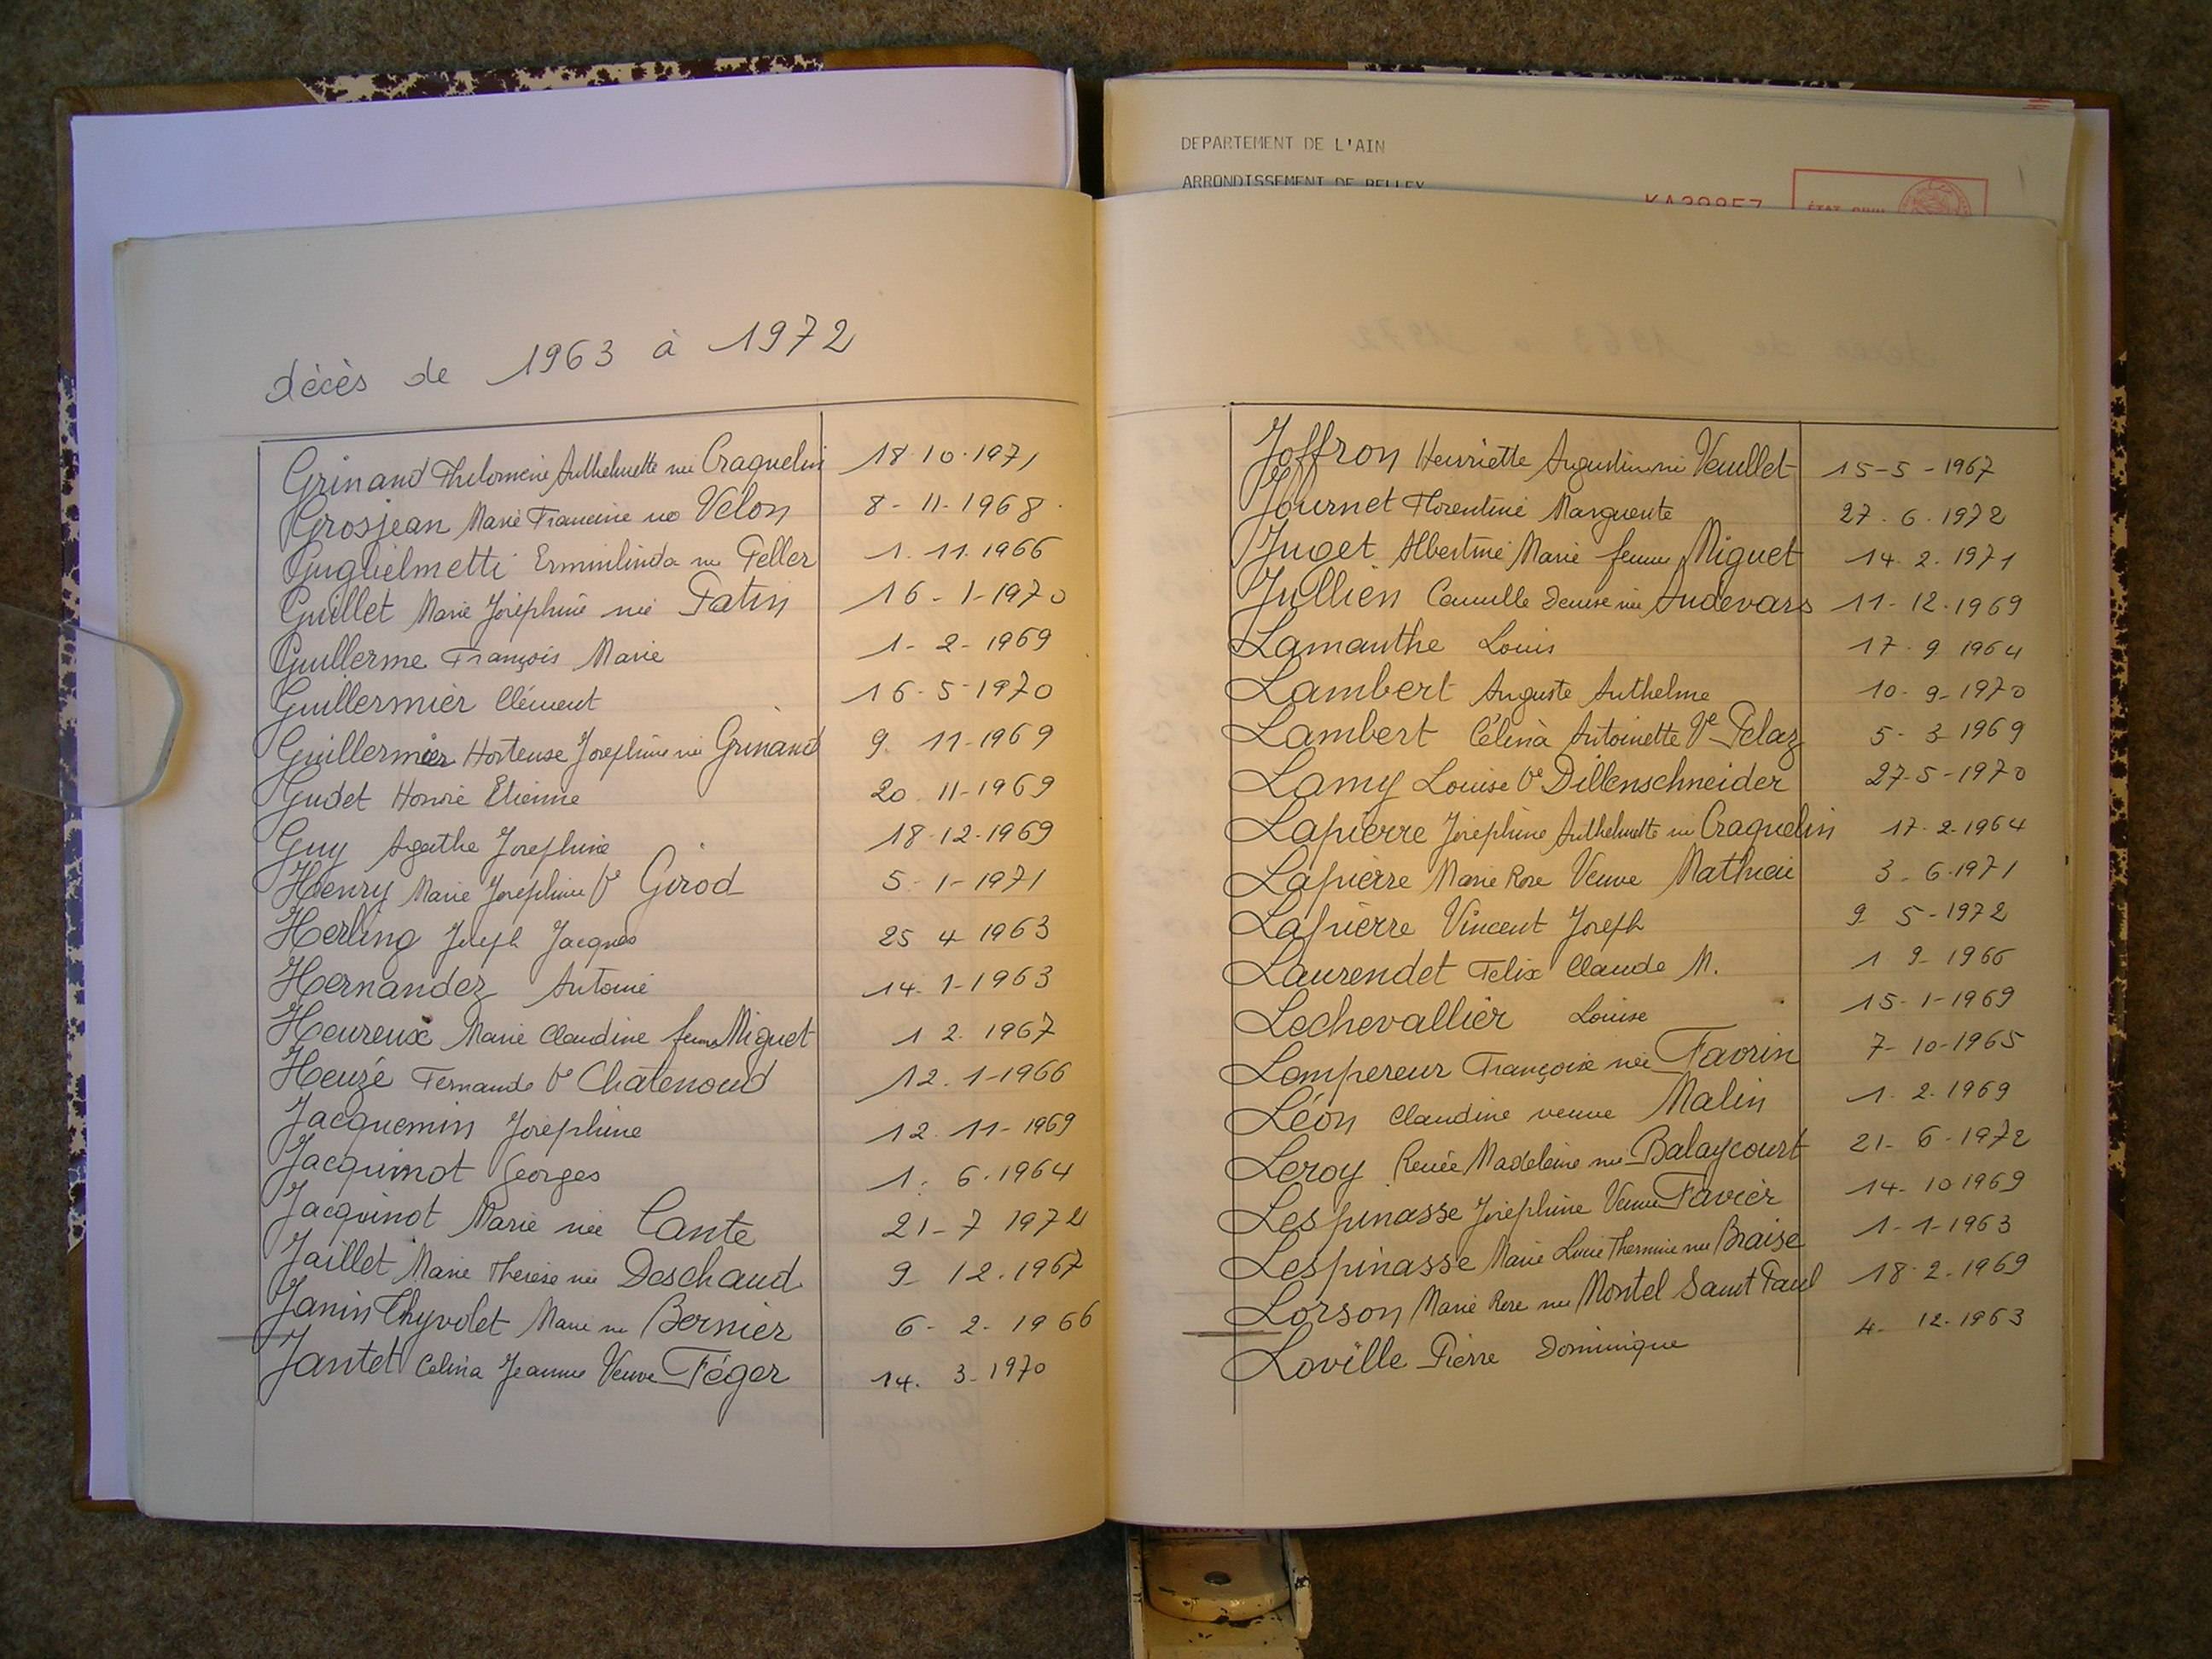 DEPARTEMENT DE L'AIN
ARRONDISSEMENT DE BELLEY
ÉTAT CIVIL
décès de 1963 à 1972
Grinand Philomène Anthelmette née Craquelin 18.10.1971
Grosjean Marie Francine née Velon 8-11-1968
Guglielmetti Ermilinda née Peller 1.11.1966
Guillet Marie Joséphine née Patin 16-1-1970
Guillerme François Marie 1-2-1969
Guillermier Clément 16-5-1970
Guillermier Hortense Joséphine née Grinand 9.11-1969
Gudet Honoré Etienne 20.11-1969
Guy Agathe Joséphine 18-12-1969
Henry Marie Joséphine Ve Girod 5-1-1971
Herling Joseph Jacques 25 4 1963
Hernandez Antoine 14.1-1963
Heureux Marie Claudine femme Miguet 1 2.1967
Heuzé Fernande Ve Châtenoud 12.1-1966
Jacquemin Joséphine 12.11-1969
Jacquinot Georges 1.6.1964
Jacquinot Marie née Cante 21-7 1972
Jaillet Marie Thérèse née Deschaud 9 12.1967
Janin Thyvolet Marie née Bernier 6-2-1966
Jantet Celina Jeanne Veuve Féger 14.3-1970
Joffron Henriette Augustine née Veuillet 15-5-1967
Journet Florentine Marguerite 27.6.1972
Juget Albertine Marie femme Miguet 14.2.1971
Jullien Camille Denise née Andevars 11-12.1969
Lamanthe Louis 17.9.1964
Lambert Auguste Anthelme 10-9-1970
Lambert Célina Antoinette Ve Pelaz 5-3 1969
Lamy Louise Ve Dillenschneider 27-5-1970
Lapierre Joséphine Anthelmette née Craquelin 17-2-1964
Lapierre Marie Rose Veuve Mathieu 3-6.1971
Lapierre Vincent Joseph 9 5-1972
Laurendet Felix Claude M. 1 9-1966
Lechevallier Louise 15-1-1969
Lempereur Françoise née Favrin 7-10-1965
Léon Claudine veuve Malin 1.2.1969
Leroy Renée Madeleine née Balaycourt 21-6-1972
Lespinasse Joséphine Veuve Favier 14-10 1969
Lespinasse Marie Lucie Thermine née Braise 1-1-1963
Lorson Marie Rose née Montel Saint Paul 18.2.1969
Loville Pierre Dominique 4-12-1963